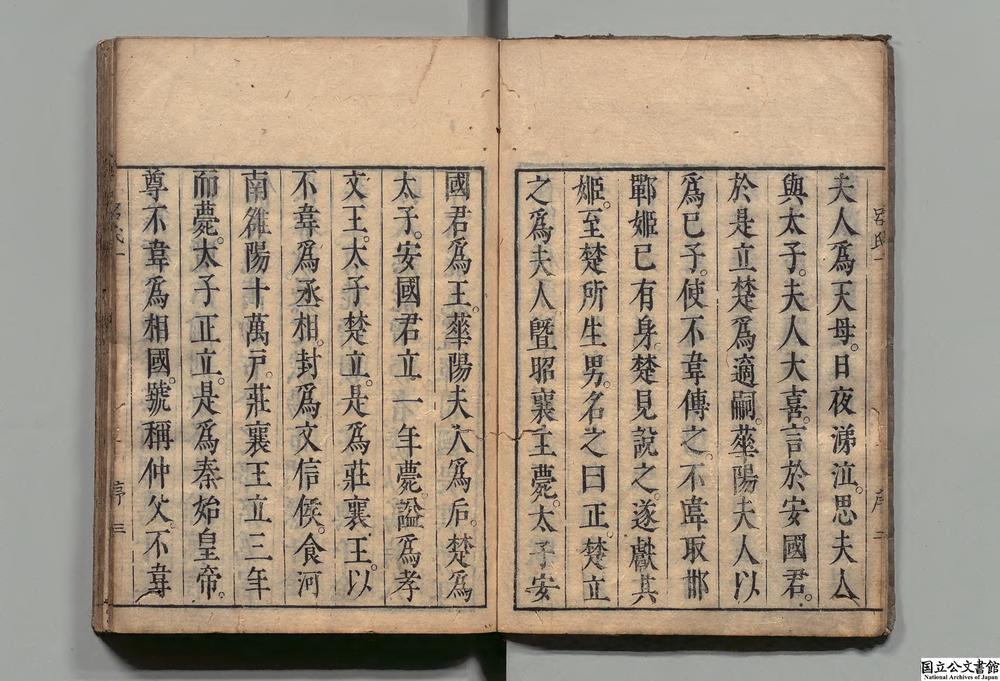 夫人爲天母。日夜涕泣。思夫人
與太子。夫人大喜。言於安國君。
於是立楚爲適嗣。華陽夫人以
爲己子。使不韋傅之。不韋取邯
鄲姬已有身。楚見說之。遂獻其
姬。至楚所生男。名之曰正。楚立
之爲夫人曁昭襄王薨。太子安
國君爲王。華陽夫人爲后。楚爲
太子。安國君立一年薨。諡爲孝
文王。太子楚立。是爲莊襄王。以
不韋爲丞相。封爲文信侯。食河
南雒陽十萬戸。莊襄王立三年
而薨。太子正立。是爲秦始皇帝。
尊不韋爲相國。號稱仲父。不韋
呂氏一
序二
序三
国立公文書館
National Archives of Japan